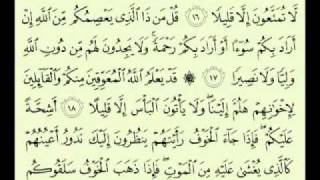 لَّا تُمَتَّعُونَ إِلَّا قَلِيلًا ١٦ قُلْ مَن ذَا الَّذِي يَعْصِمُكُم مِّنَ اللَّهِ إِنْ
أَرَادَ بِكُمْ سُوءًا أَوْ أَرَادَ بِكُمْ رَحْمَةً ۚ وَلَا يَجِدُونَ لَهُم مِّن دُونِ اللَّهِ
وَلِيًّا وَلَا نَصِيرًا ١٧ قَدْ يَعْلَمُ اللَّهُ الْمُعَوِّقِينَ مِنكُمْ وَالْقَائِلِينَ
لِإِخْوَانِهِمْ هَلُمَّ إِلَيْنَا ۖ وَلَا يَأْتُونَ الْبَأْسَ إِلَّا قَلِيلًا ١٨ أَشِحَّةً
عَلَيْكُمْ ۖ فَإِذَا جَاءَ الْخَوْفُ رَأَيْتَهُمْ يَنظُرُونَ إِلَيْكَ تَدُورُ أَعْيُنُهُمْ
كَالَّذِي يُغْشَىٰ عَلَيْهِ مِنَ الْمَوْتِ ۖ فَإِذَا ذَهَبَ الْخَوْفُ سَلَقُوكُم